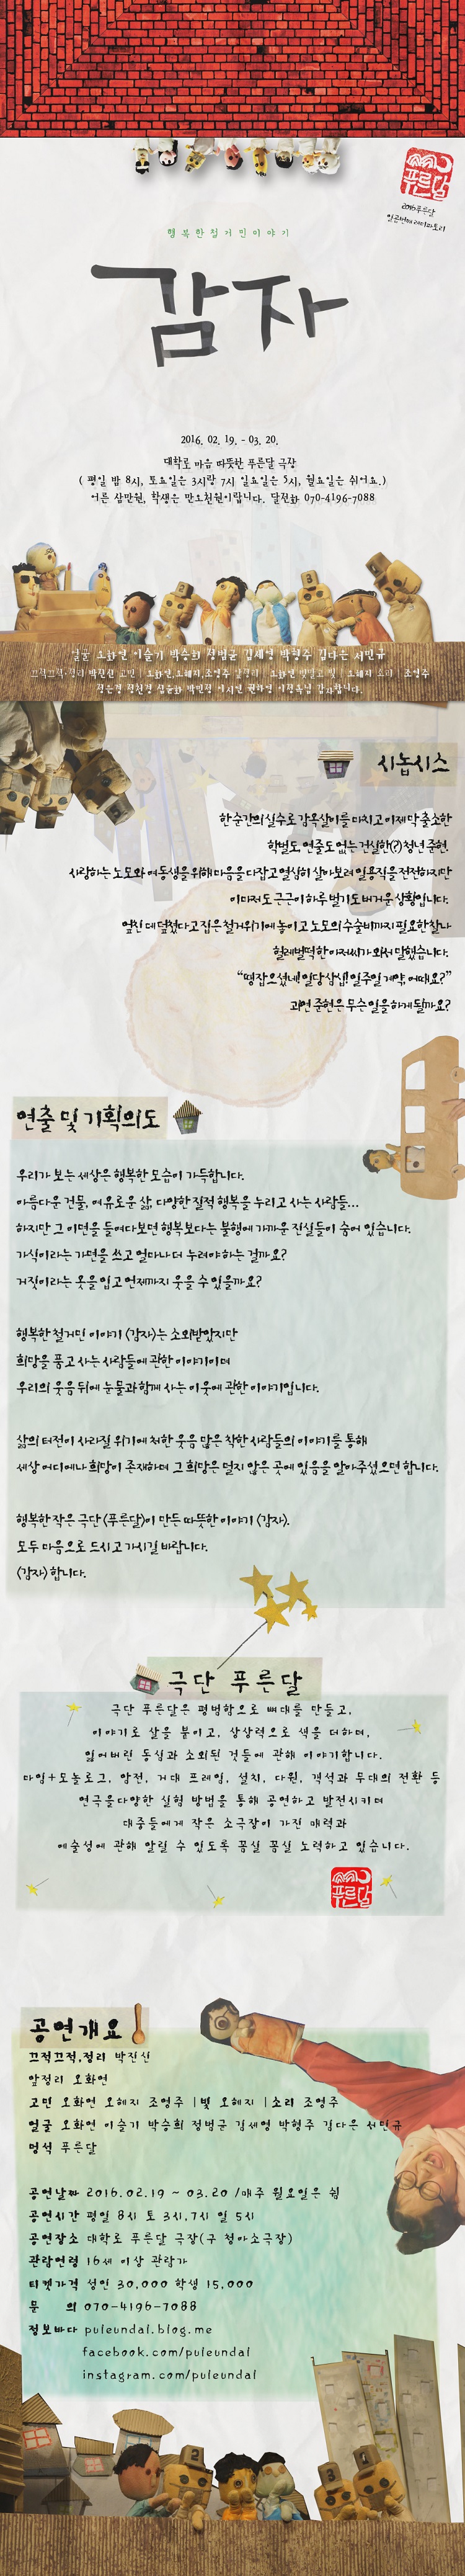 푸른달
2016 푸른달
일곱번째 레퍼토리
행복한철거민이야기
감자
2016. 02. 19. - 03. 20.
대학로 마음 따뜻한 푸른달 극장
( 평일 밤 8시, 토요일은 3시랑 7시 일요일은 5시, 월요일은 쉬어요.)
어른 삼만원, 학생은 만오천원이랍니다. 달전화 070-4196-7088
얼굴 오화연 이슬기 박승희 정범균 김세영 박형주 김다은 서민규
끄적끄적·정리 박진신 고민 | 오화연, 오혜지, 조영주 오화연 빛 | 오혜지 소리 | 조영주
정은경 정천경 심윤화 박민정 이시연 권하영 이정욱님 감사합니다.
시놉시스
한순간의 실수로 감옥살이를 마치고 이제 막 출소한
학벌도, 연줄도 없는 건실한(?) 청년 준현.
사랑하는 노모와 여동생을 위해 마음을 다잡고 열심히 살아보려 일용직을 전전하지만
이마저도 근근이 하루 벌기도 버거운 상황입니다.
엎친 데 덮쳤다고 집은 철거위기에 놓이고 노모의 수술비까지 필요한 찰나
헐레벌떡 한 아저씨가 와서 말했습니다.
“땡잡으셨네! 일당 삼십! 일주일 계약, 어때요?”
과연 준현은 무슨 일을 하게 될까요?
연출 및 기획의도
우리가 보는 세상은 행복한 모습이 가득합니다.
아름다운 건물, 여유로운 삶, 다양한 질적 행복을 누리고 사는 사람들...
하지만 그 이면을 들여다보면 행복보다는 불행에 가까운 진실들이 숨어 있습니다.
가식이라는 가면을 쓰고 얼마나 더 누려야 하는 걸까요?
거짓이라는 옷을 입고 언제까지 웃을 수 있을까요?
행복한 철거민 이야기 <감자>는 소외받았지만
희망을 품고 사는 사람들에 관한 이야기이며
우리의 웃음 뒤에 눈물과 함께 사는 이웃에 관한 이야기입니다.
삶의 터전이 사라질 위기에 처한 웃음 많은 착한 사람들의 이야기를 통해
세상 어디에나 희망이 존재하며 그 희망은 멀지 않은 곳에 있음을 알아주셨으면 합니다.
행복한 작은 극단 <푸른달>이 만든 따뜻한 이야기 <감자>.
모두 마음으로 드시고 가시길 바랍니다.
<감자> 합니다.
극단 푸른달
극단 푸른달은 평범함으로 뼈대를 만들고,
이야기로 살을 붙이고, 상상력으로 색을 더하며,
잃어버린 동심과 소외된 것들에 관해 이야기합니다.
마임+모놀로그, 암전, 거대 프레임, 설치, 다원, 객석과 무대의 전환 등
연극을다양한 실험 방법을 통해 공연하고 발전시키며
대중들에게 작은 소극장이 가진 매력과
예술성에 관해 알릴 수 있도록 꼼실 꼼실 노력하고 있습니다.
푸른달
공연개요
끄적끄적,정리 박진신
앞정리 오화연
고민 오화연 오혜지 조영주 |빛 오혜지 |소리 조영주
얼굴 오화연 이슬기 박승희 정범균 김세영 박형주 김다은 서민규
멍석 푸른달
공연날짜 2016.02.19 ~ 03.20 /매주 월요일은 쉼
공연시간 평일 8시 토 3시,7시 일 5시
공연장소 대학로 푸른달 극장(구 청아소극장)
관람연령 16세 이상 관람가
티켓가격 성인 30,000 학생 15,000
문 의 070-4196-7088
정보바다 puleundal.blog.me
facebook.com/puleundal
instagram.com/puleundal